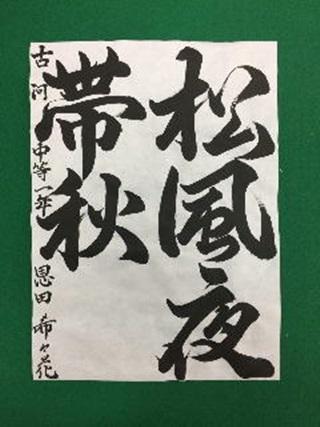 松風夜
帯秋
古河中等一年 恩田希々花